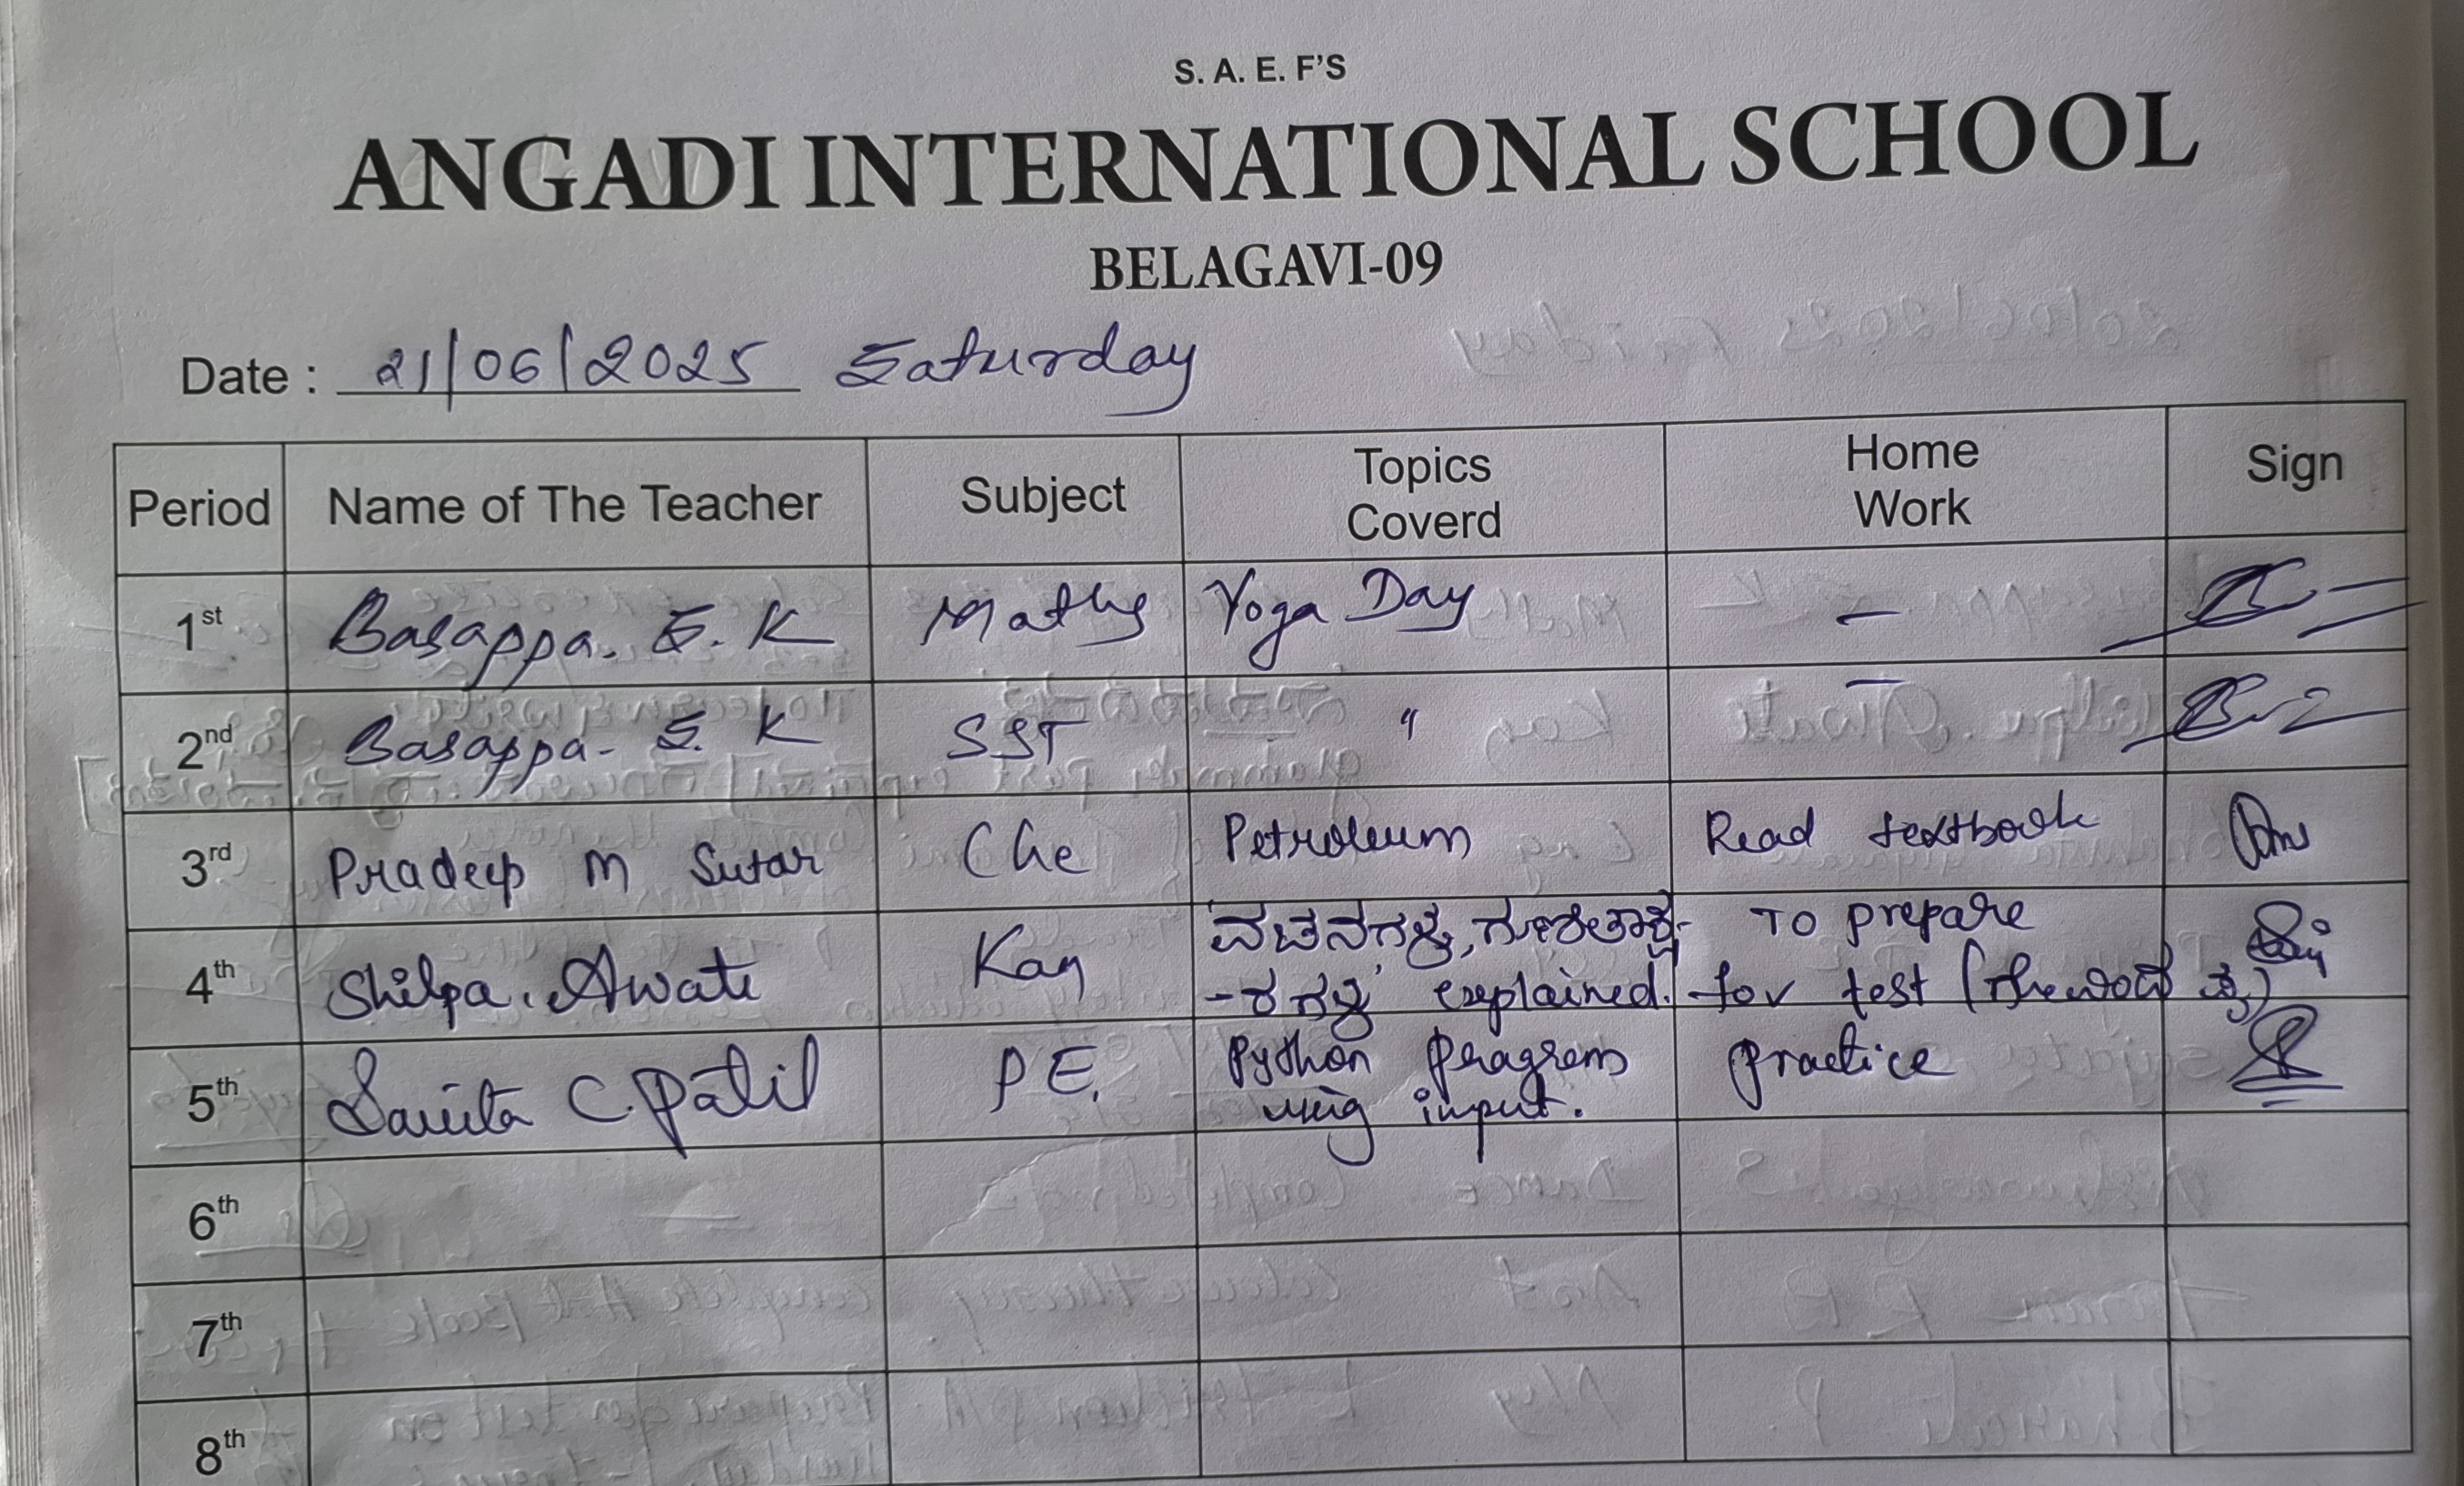 S. A. E. F'S
ANGADI INTERNATIONAL SCHOOL
BELAGAVI-09
Date : 21/06/2025 Saturday
Period Name of The Teacher Subject Topics Coverd Home Work Sign
1st Basappa. S. K Maths Yoga Day —
2nd Basappa- S. K SST " —
3rd Pradeep M Sutar Che Petroleum Read textbook
4th Shilpa. Awate Kan ವಚನಗಳು, To prepare
explained. for test
5th Savita C. Patil P E. Python program practice
using input.
6th
7th
8th